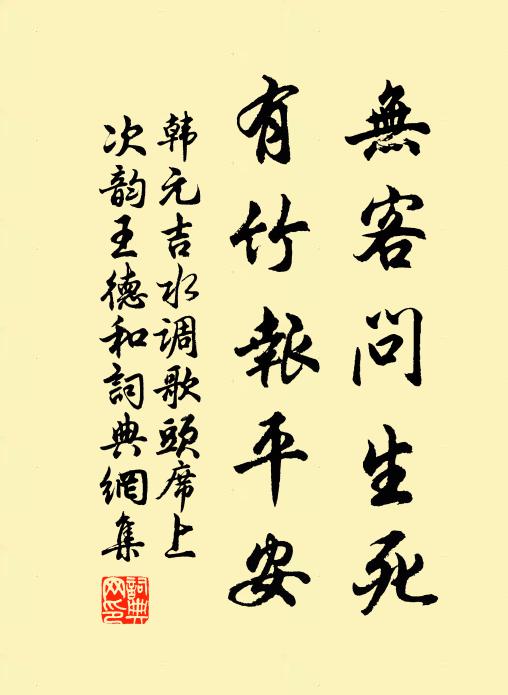 無客问生死
有竹報平安
韩元吉水调歌頭席上
次韵王德和詞典網集
詞典网印